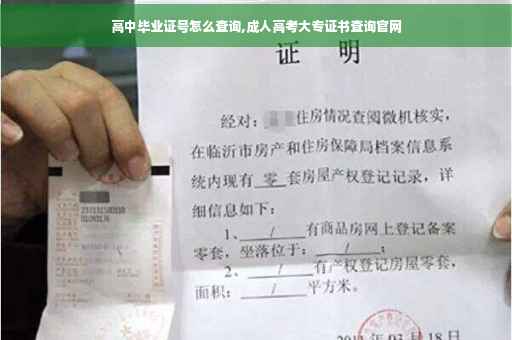 高中毕业证号怎么查询,成人高考大专证书查询官网
证 明
经对：住房情况查阅微机核实，
在临沂市房产和住房保障局档案信息系
统内现有 零 套房屋产权登记记录，详
细信息如下：
1、 / 有商品房网上登记备案
零套，坐落位于： / ；
2、 / 有产权登记房屋零套，
面积： / 平方米。
03 月 18 日